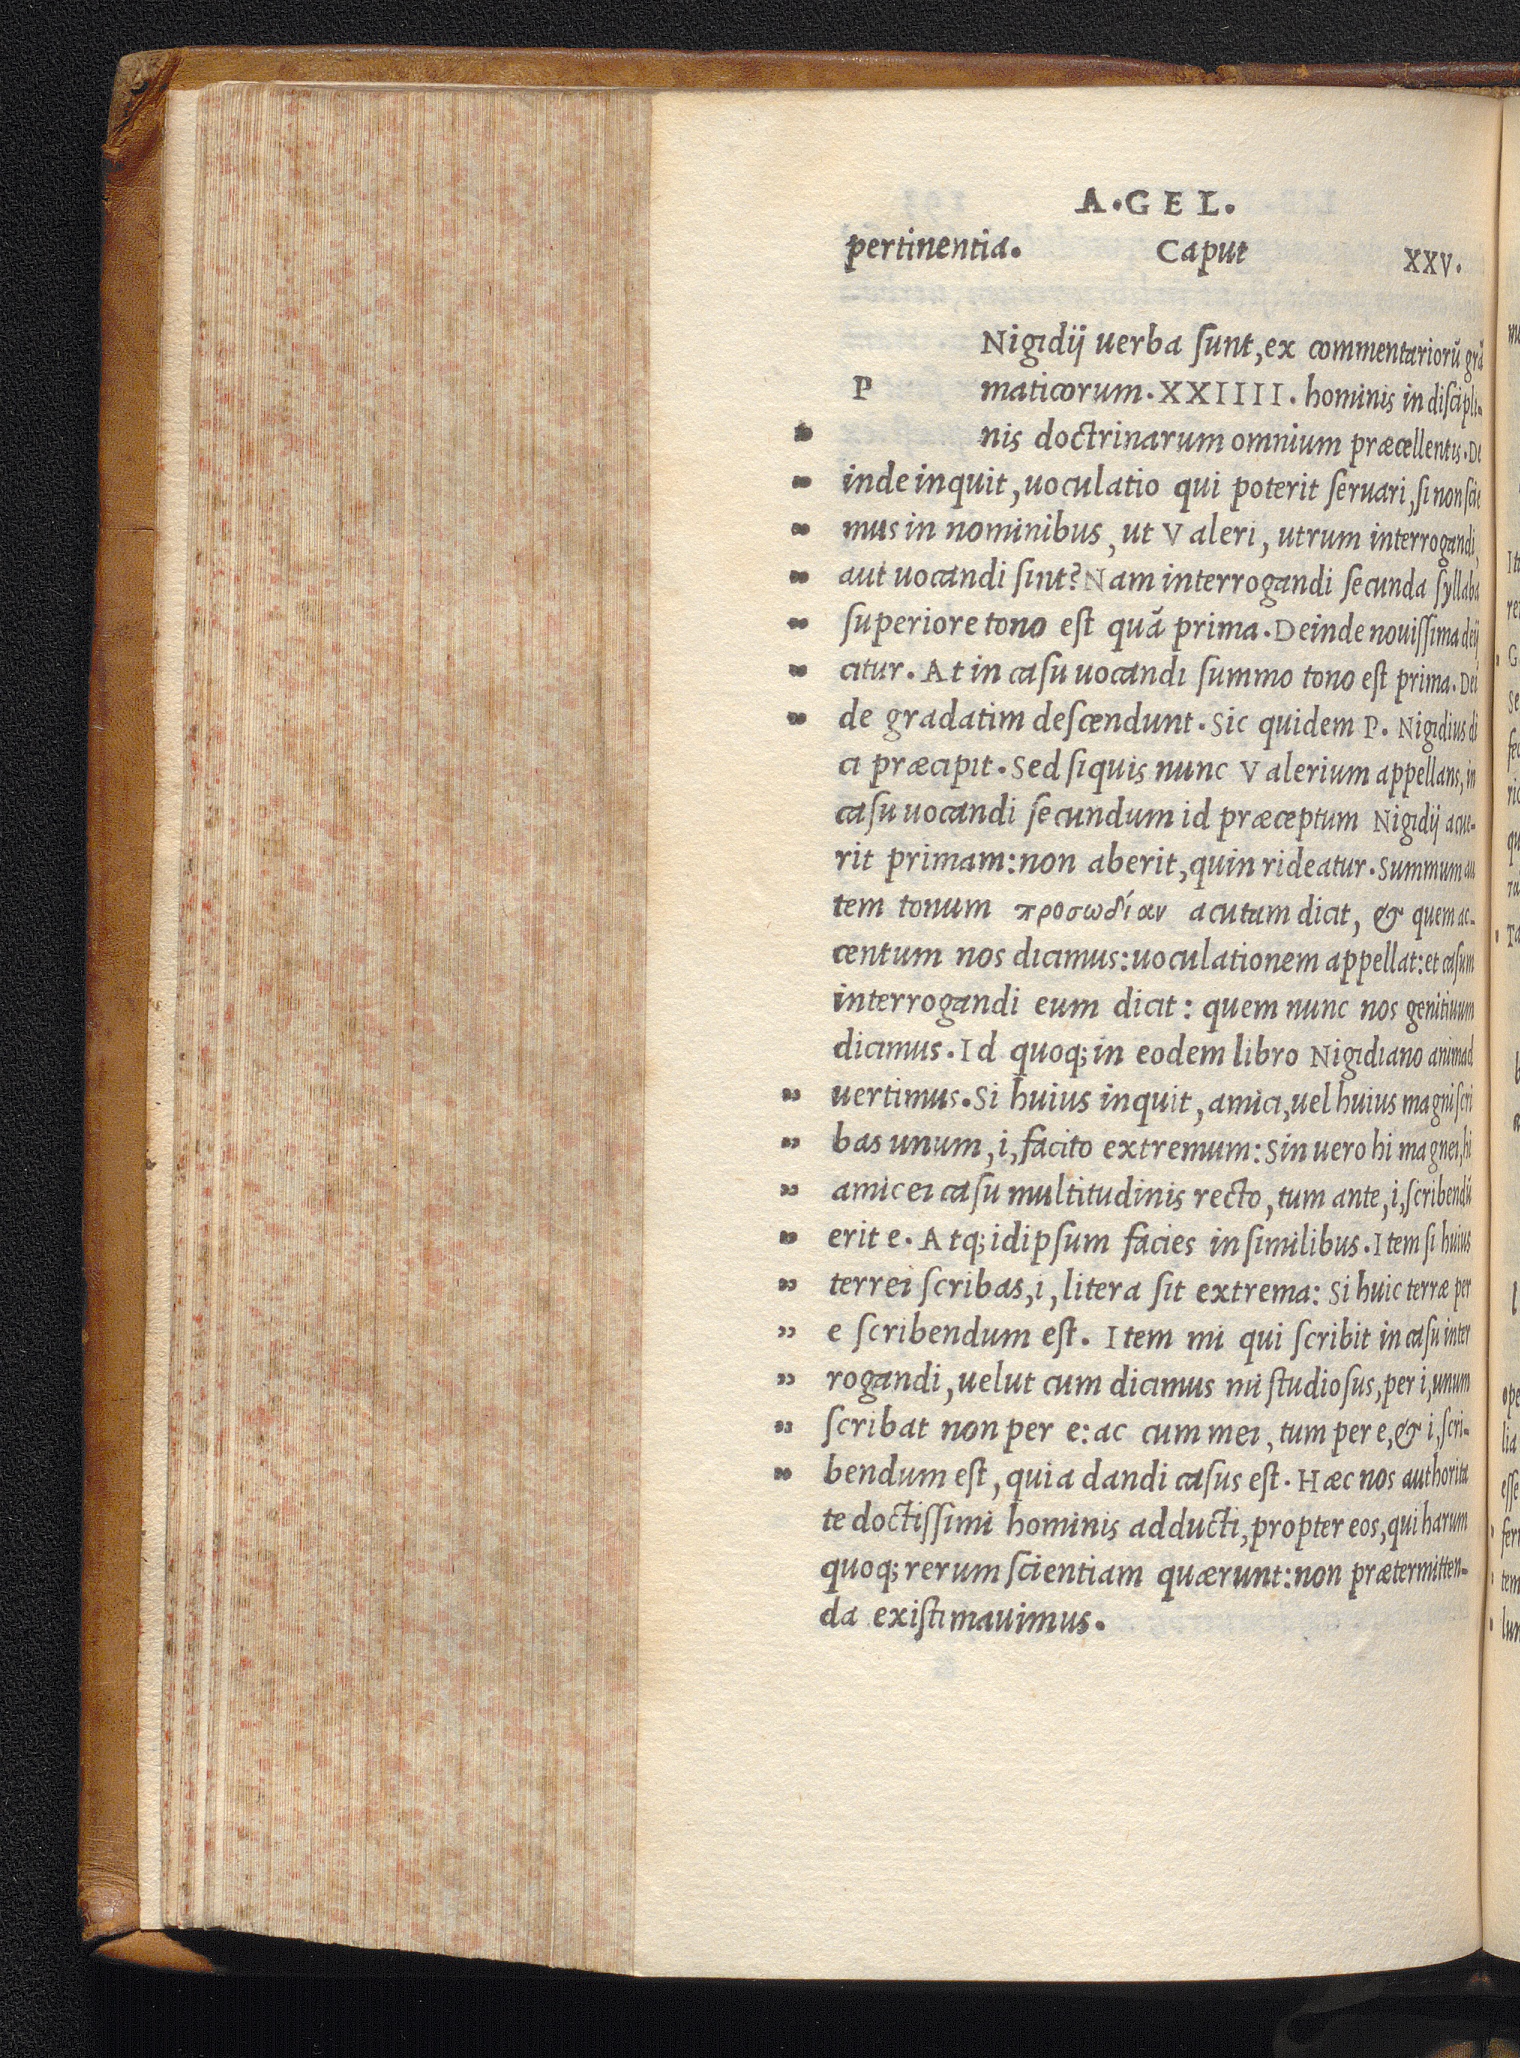 A. GEL.
pertinentia. Caput XXV.
P Nigidij uerba sunt, ex commentariorũ grã
maticorum. XXIIII. hominis in discipli-
" nis doctrinarum omnium præcellentis. De
" inde inquit, uoculatio qui poterit seruari, si non sci
" mus in nominibus, ut Valeri, utrum interrogandi,
" aut uocandi sint? Nam interrogandi secunda syllaba
" superiore tono est quã prima. Deinde nouissima deij
" citur. At in casu uocandi summo tono est prima. Dei
" de gradatim descendunt. Sic quidem P. Nigidius di
ci præcipit. Sed siquis nunc Valerium appellans, in
casu uocandi secundum id præceptum Nigidij acue-
rit primam: non aberit, quin rideatur. Summum au
tem tonum προσωδίαν acutam dicit, & quem ac-
centum nos dicimus: uoculationem appellat: et casum
interrogandi eum dicit: quem nunc nos genitiuum
dicimus. Id quoq; in eodem libro Nigidiano animad
" uertimus. Si huius inquit, amici, uel huius magni scri
" bas unum, i, facito extremum: Sin uero hi magnei, hi
" amicei casu multitudinis recto, tum ante, i, scribendũ
" erit e. Atq; idipsum facies in similibus. Item si huius
" terrei scribas, i, litera sit extrema: Si huic terræ per
" e scribendum est. Item mi qui scribit in casu inter
" rogandi, uelut cum dicimus mi studiosus, per i, unum
" scribat non per e: ac cum mei, tum per e, & i, scri-
" bendum est, quia dandi casus est. Hæc nos authorita
te doctissimi hominis adducti, propter eos, qui harum
quoq; rerum scientiam quærunt: non prætermitten-
da existimauimus.